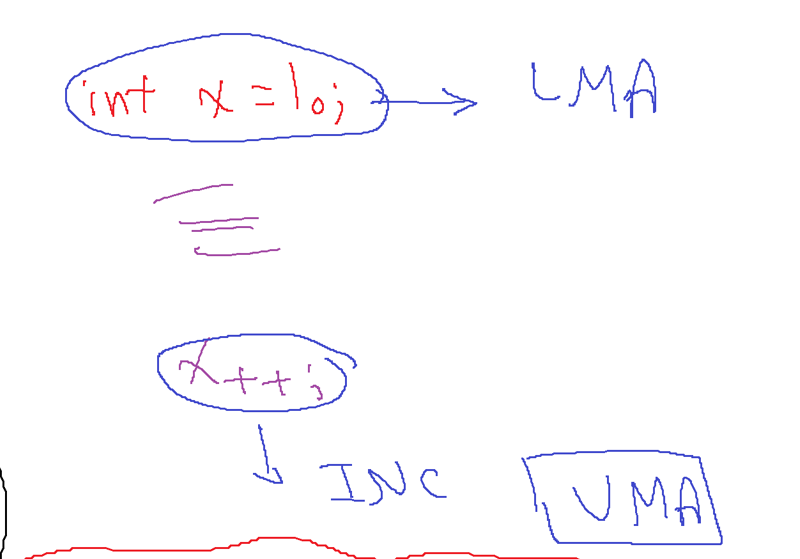 int x = 10; → LMA
x++;
↓ INC
VMA